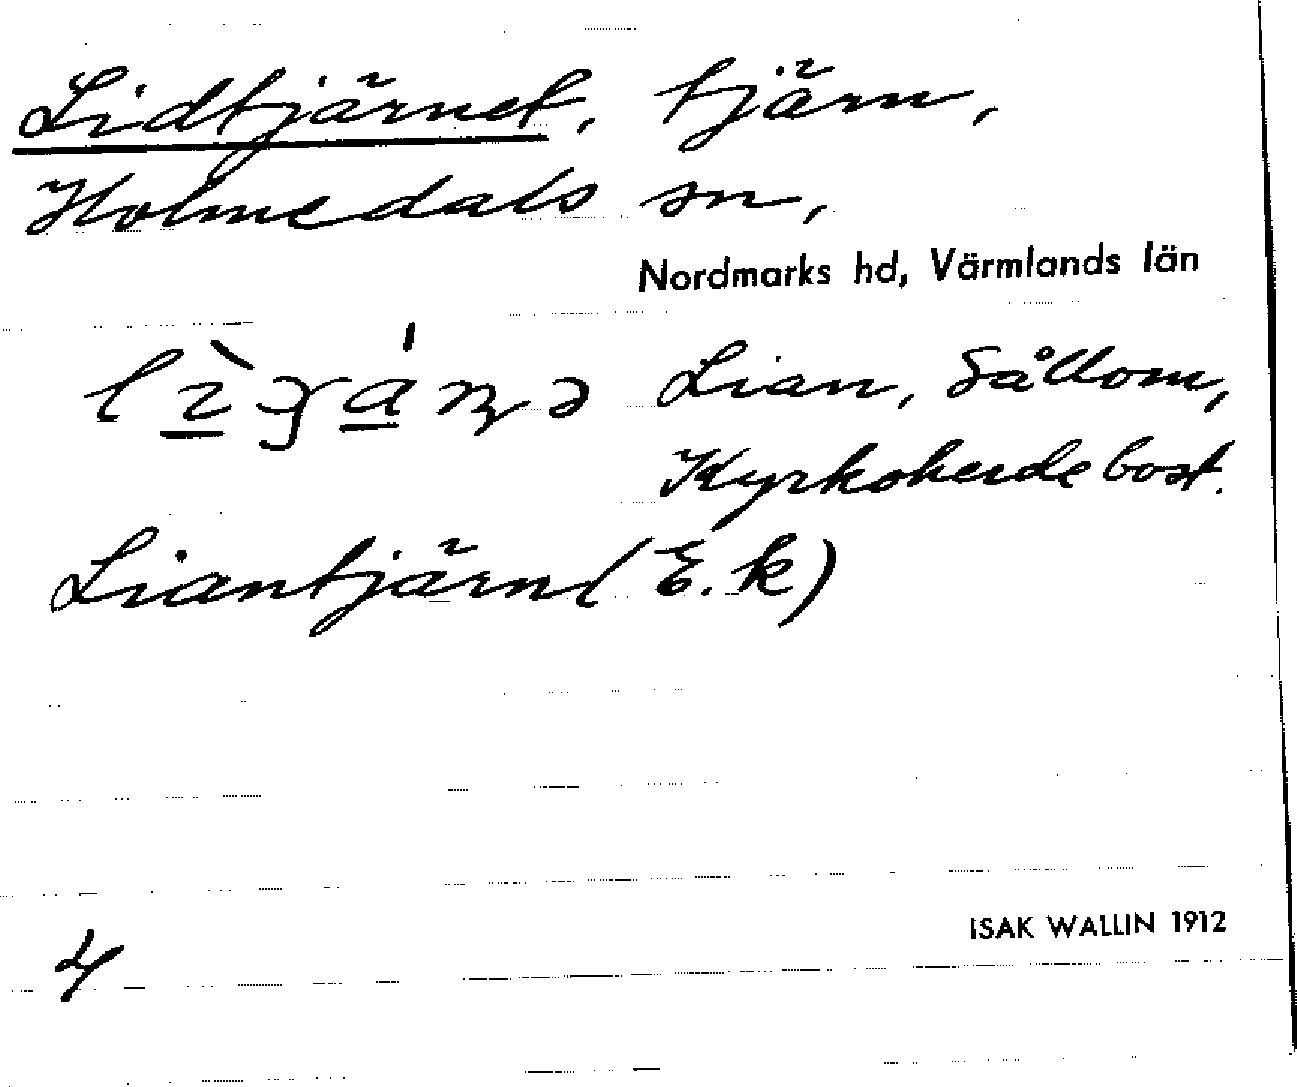 Lidtjärnet, tjärn,
Holmedals sn,
Nordmarks hd, Värmlands län
Lian, Sållom,
Kyrkoherdebost.
Liantjärn (E.k)
ISAK WALLIN 1912
4